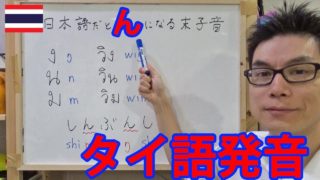 日本語だとんになる末子音
ง ŋ วิง wiŋ
น n วิน win
ม m วิม wim
しんぶんし
shi
タイ語発音